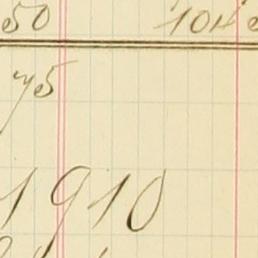 50 104
75
1910